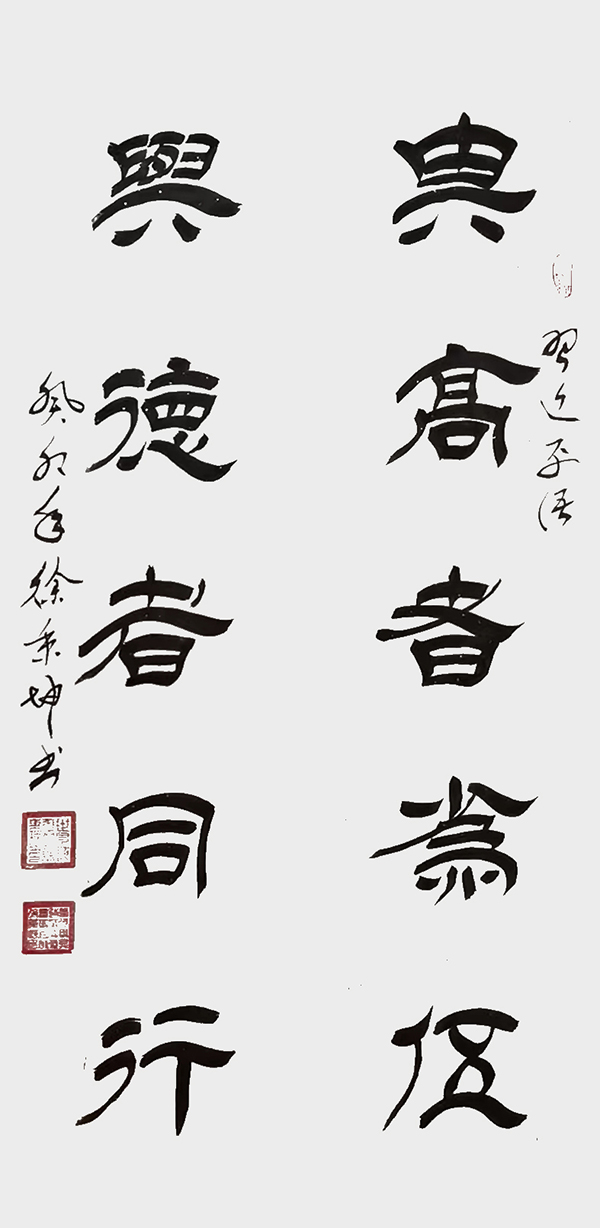 習近平語
與高者為伍
與德者同行
癸卯年徐秉坤书